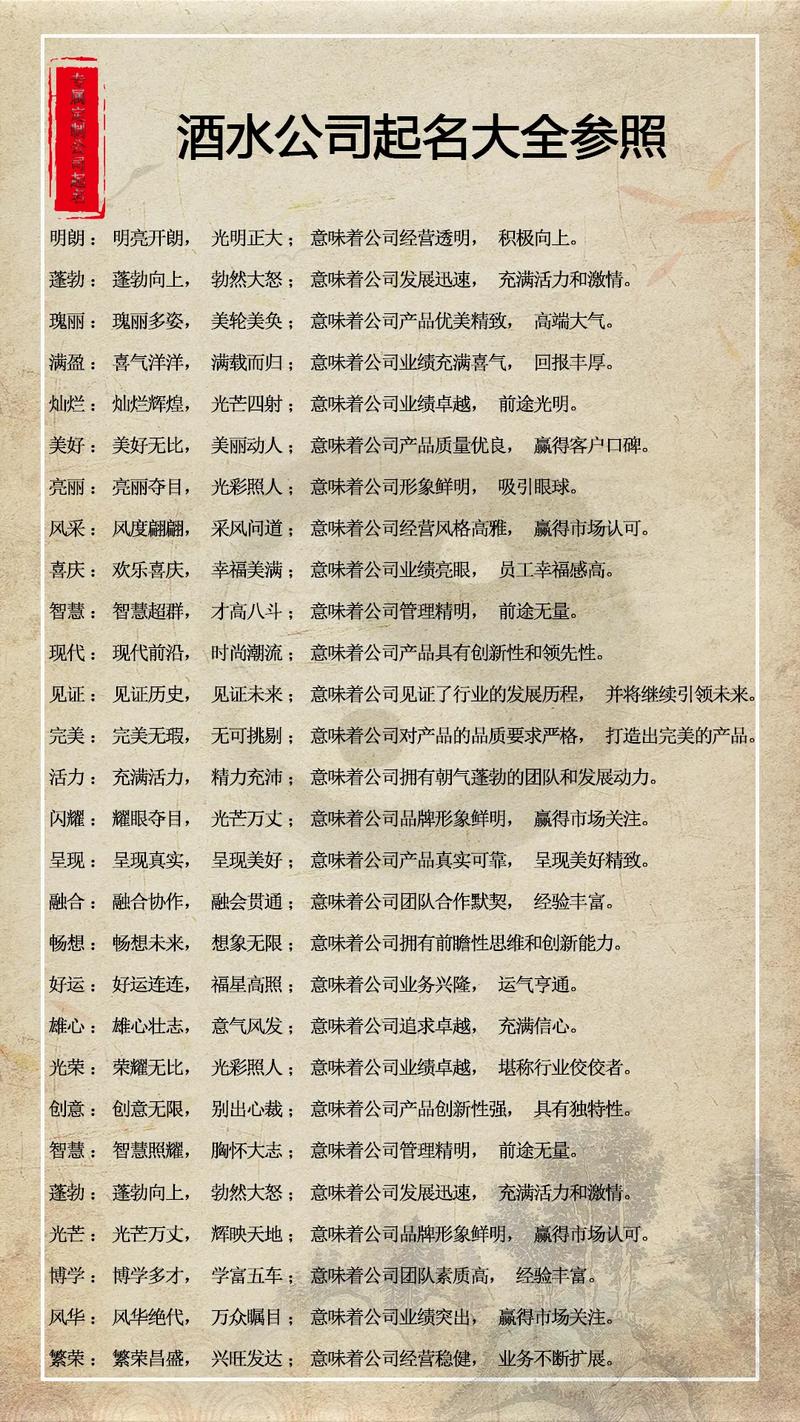 酒水公司起名大全参照
明朗： 明亮开朗， 光明正大； 意味着公司经营透明， 积极向上。
蓬勃： 蓬勃向上， 勃然大怒； 意味着公司发展迅速， 充满活力和激情。
瑰丽： 瑰丽多姿， 美轮美奂； 意味着公司产品优美精致， 高端大气。
满盈： 喜气洋洋， 满载而归； 意味着公司业绩充满喜气， 回报丰厚。
灿烂： 灿烂辉煌， 光芒四射； 意味着公司业绩卓越， 前途光明。
美好： 美好无比， 美丽动人； 意味着公司产品质量优良， 赢得客户口碑。
亮丽： 亮丽夺目， 光彩照人； 意味着公司形象鲜明， 吸引眼球。
风采： 风度翩翩， 采风问道； 意味着公司经营风格高雅， 赢得市场认可。
喜庆： 欢乐喜庆， 幸福美满； 意味着公司业绩亮眼， 员工幸福感高。
智慧： 智慧超群， 才高八斗； 意味着公司管理精明， 前途无量。
现代： 现代前沿， 时尚潮流； 意味着公司产品具有创新性和领先性。
见证： 见证历史， 见证未来； 意味着公司见证了行业的发展历程， 并将继续引领未来。
完美： 完美无瑕， 无可挑剔； 意味着公司对产品的品质要求严格， 打造出完美的产品。
活力： 充满活力， 精力充沛； 意味着公司拥有朝气蓬勃的团队和发展动力。
闪耀： 耀眼夺目， 光芒万丈； 意味着公司品牌形象鲜明， 赢得市场关注。
呈现： 呈现真实， 呈现美好； 意味着公司产品真实可靠， 呈现美好精致。
融合： 融合协作， 融会贯通； 意味着公司团队合作默契， 经验丰富。
畅想： 畅想未来， 想象无限； 意味着公司拥有前瞻性思维和创新能力。
好运： 好运连连， 福星高照； 意味着公司业务兴隆， 运气亨通。
雄心： 雄心壮志， 意气风发； 意味着公司追求卓越， 充满信心。
光荣： 荣耀无比， 光彩照人； 意味着公司业绩卓越， 堪称行业佼佼者。
创意： 创意无限， 别出心裁； 意味着公司产品创新性强， 具有独特性。
智慧： 智慧照耀， 胸怀大志； 意味着公司管理精明， 前途无量。
蓬勃： 蓬勃向上， 勃然大怒； 意味着公司发展迅速， 充满活力和激情。
光芒： 光芒万丈， 辉映天地； 意味着公司品牌形象鲜明， 赢得市场认可。
博学： 博学多才， 学富五车； 意味着公司团队素质高， 经验丰富。
风华： 风华绝代， 万众瞩目； 意味着公司业绩突出， 赢得市场关注。
繁荣： 繁荣昌盛， 兴旺发达； 意味着公司经营稳健， 业务不断扩展。